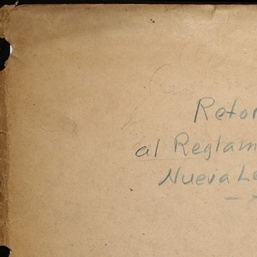 Retor
al Reglam
Nueva Le